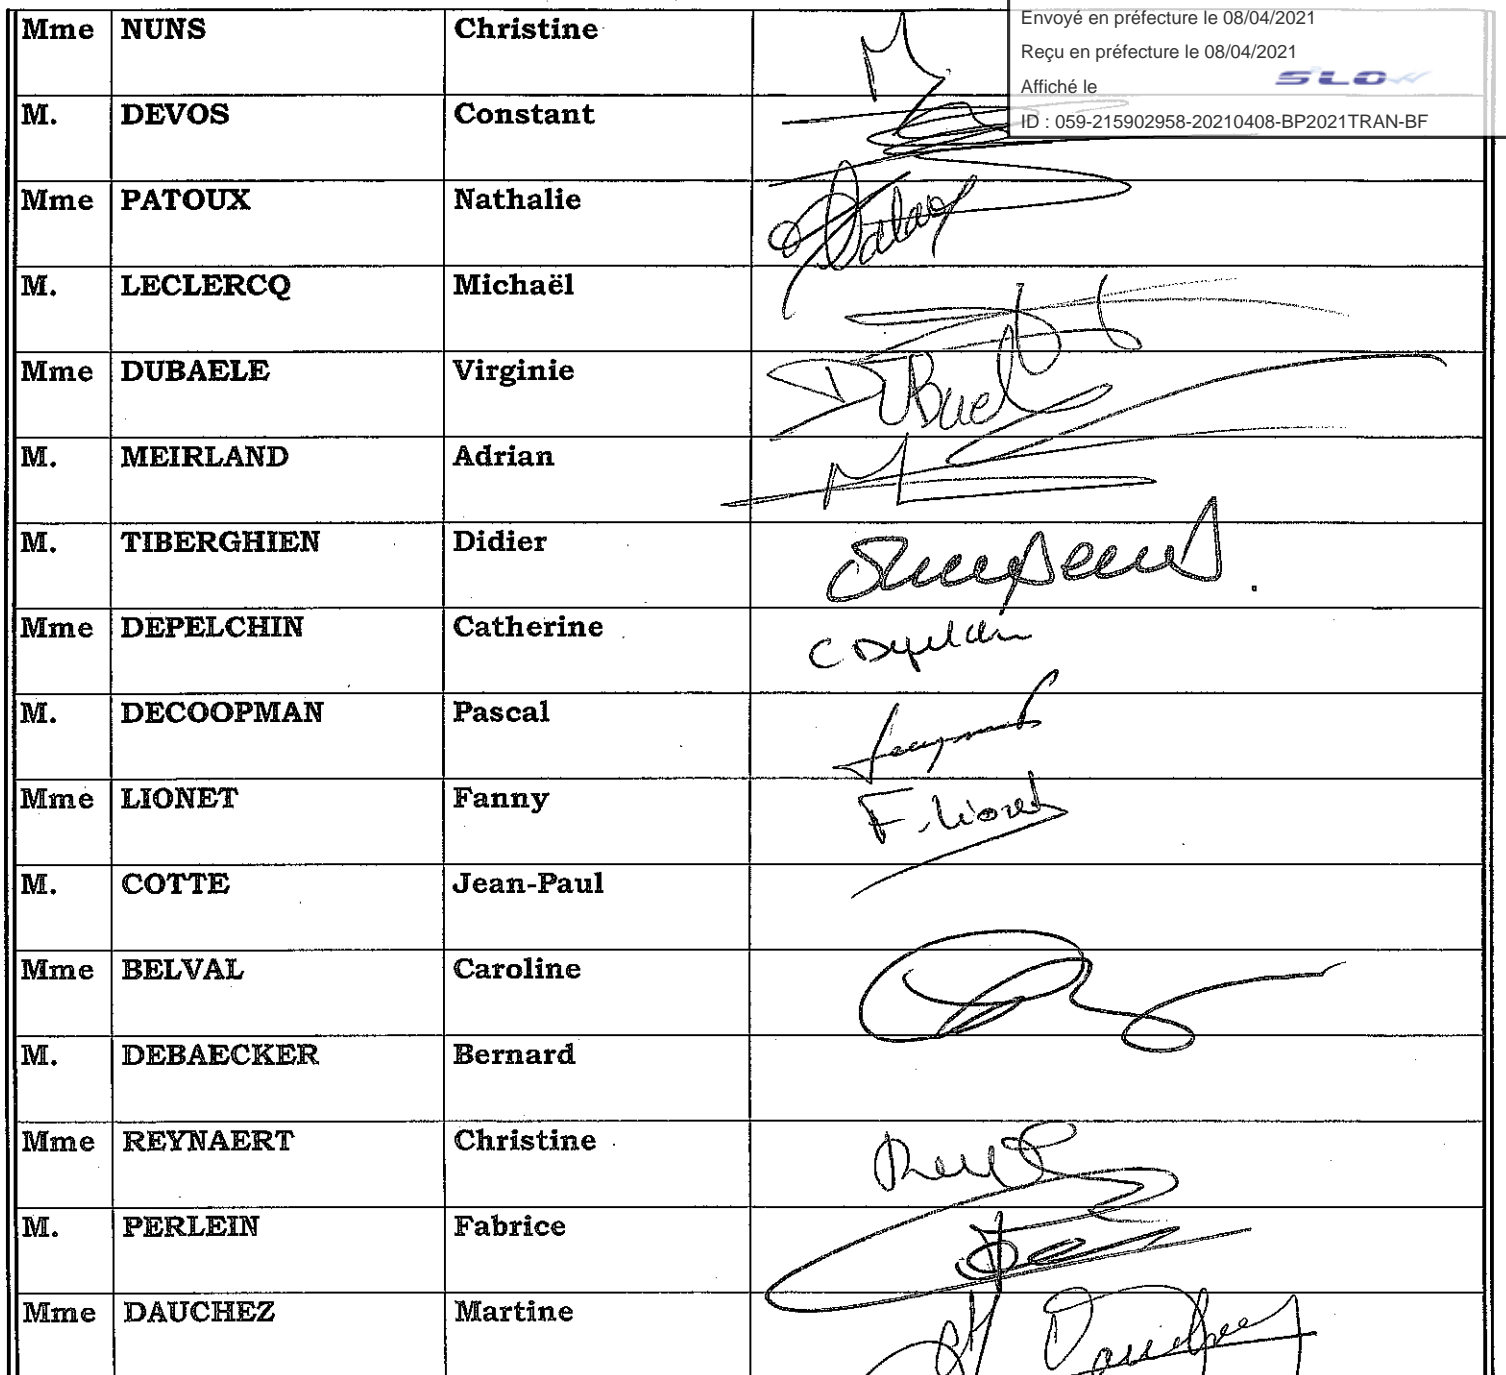 Envoyé en préfecture le 08/04/2021
Reçu en préfecture le 08/04/2021
Affiché le
SLO
ID : 059-215902958-20210408-BP2021TRAN-BF
Mme NUNS Christine
M. DEVOS Constant
Mme PATOUX Nathalie
M. LECLERCQ Michaël
Mme DUBAELE Virginie
M. MEIRLAND Adrian
M. TIBERGHIEN Didier
Mme DEPELCHIN Catherine
M. DECOOPMAN Pascal
Mme LIONET Fanny F. Lionet
M. COTTE Jean-Paul
Mme BELVAL Caroline
M. DEBAECKER Bernard
Mme REYNAERT Christine
M. PERLEIN Fabrice
Mme DAUCHEZ Martine